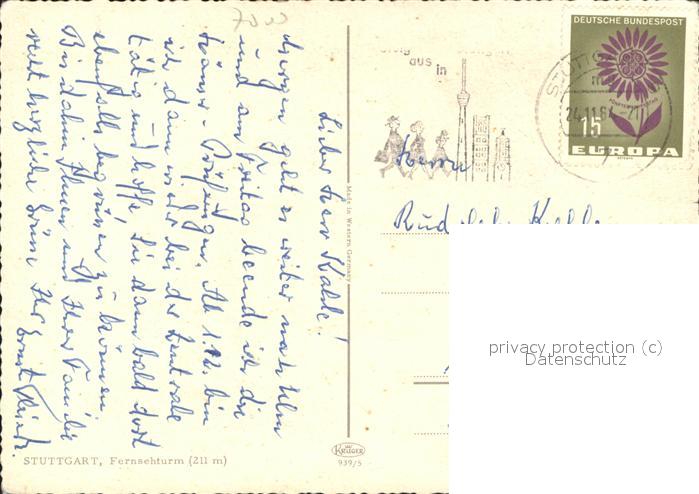 7000
Lieber Herr Kalde!
Morgen geht es weiter nach Ulm
und am Freitag beende ich die
Prüfungen. Ab 1.12. bin
ich dann wieder bei der Zentrale
tätig und hoffe Sie dann bald dort
ebenfalls begrüssen zu können.
Bis dahin Ihnen und Ihrer Familie
recht herzliche Grüsse Ihr Ernst
STUTTGART, Fernsehturm (211 m)
Made in Western Germany
KRÜGER
939/5
aus
in
STUTTG
24.11.64
DEUTSCHE BUNDESPOST
15
EUROPA
Herrn
privacy protection (c)
Datenschutz